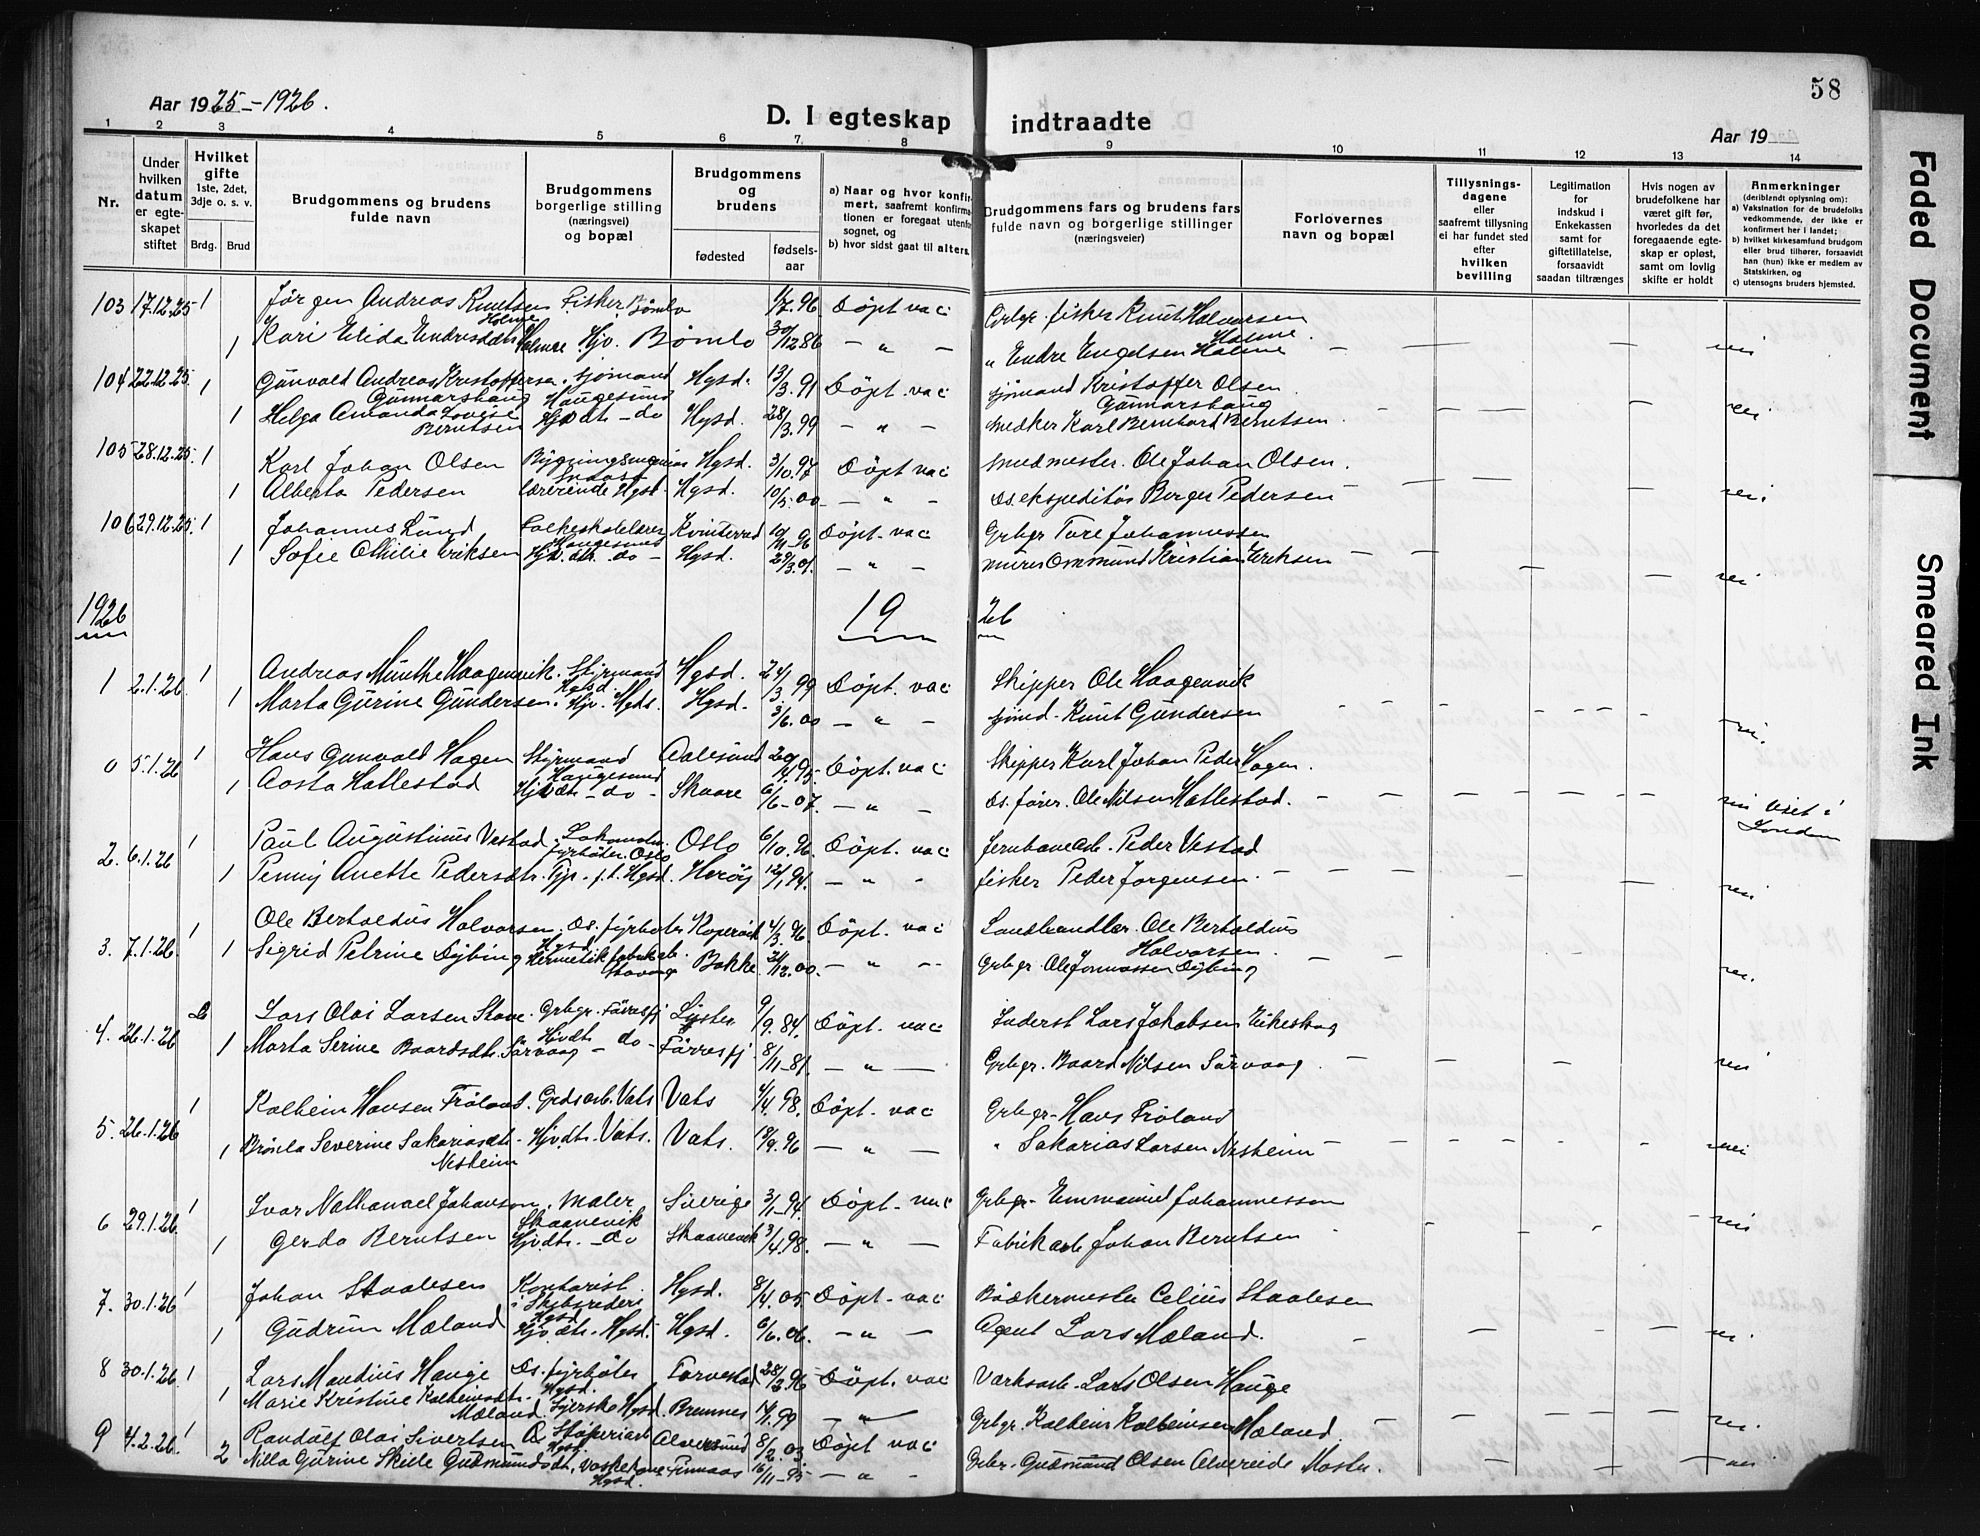 58
Aar 1925–1926.
D. I egteskap indtraadte
Aar 19
1 2 3 4 5 6 7. 8 9 10 11 12 13 14
Nr.
Under hvilken datum er egteskapet stiftet
Hvilket gifte
1ste, 2det, 3dje o. s. v.
Brdg. Brud
Brudgommens og brudens fulde navn
Brudgommens borgerlige stilling (næringsvei) og bopæl
Brudgommens og brudens
fødested
fødsels-aar
a) Naar og hvor konfirmert, saafremt konfirmationen er foregaat utenfor sognet, og
b) hvor sidst gaat til alters.
Brudgommens fars og brudens fars fulde navn og borgerlige stillinger (næringsveier)
Forlovernes navn og bopæl
Tillysningsdagene eller saafremt tillysning ei har fundet sted efter hvilken bevilling
Legitimation for indskud i Enkekassen samt for giftetillatelse, forsaavidt saadan tiltrænges
Hvis nogen av brudefolkene har været gift før, hvorledes da det foregaaende egteskap er opløst, samt om lovlig skifte er holdt
Anmerkninger
(deriblandt oplysning om):
a) Vaksination for de brudefolks vedkommende, der ikke er konfirmert her i landet;
b) hvilket kirkesamfund brudgom eller brud tilhører, forsaavidt han (hun) ikke er medlem av Statskirken, og
c) utensogns bruders hjemsted.
103 17.12.25 1 Jørgen Andreas Knutsen Holme Fisker Bømlo 1/7.96 Døpt vac Grbgr. fisker Knut Halvorsen Holme.
1 Kari Elida Endresdtr Holme Hjv. Bømlo 30/12 86 – " – " Endre Engelsen Holme – nei
104 22.12.25. 1 Gunvald Andreas Kristoffersen Gunnarshaug sjømand Haugesund Hgsd. 13/3.91 Døpt. vac sjømand Kristoffer Olsen Gunnarshaug
1 Helga Amanda Lovise Berntsen Hjvdt – do Hgsd. 28/3.99 – " – Mekler Karl Bernhard Berntsen. – nei
105 28.12.25. 1 Karl Johan Olsen Hgsd. 3/10.97 Døpt vac Smedmester. Ole Johan Olsen.
1 Alberta Pedersen Lærerinde Hgsd. Hgsd. 10/5.00 – " – Ds. ekspeditør Berger Pedersen – nei
106 29.12.25. 1 Johannes Lund Folkeskolelærer Haugesund 10/11-96 Døpt. vac Grbgr Tore Johannessen
1 Sofie Othilie Eriksen Hjv. dtr. do – Hgsd. 29/3.01. – " – Murer Ommund Kristian Eriksen – nei
1926 19 26
1 2.1.26. 1 Andreas Munthe Haagenvik. Styrmand Hgsd. Hgsd. 24/3.99 Døpt. vac Skipper Ole Haagenvik
1 Marta Gurine Gundersen. Hjv. Hgds. Hgsd. 3/6.00 – " – sjømd. Knut Gundersen – nei.
0 5.1.26 1 Hans Gunvald Hagen Styrmand Haugesund Aalesund Døpt. vac Skipper Karl Johan Peder Hagen.
1 Aasta Hatlestad Hjvdtr – do – Skaare 6/6-07. – " – Ds. fører. Ole Nilsen Hatlestad. – nei Viet i London
2. 6.1.26 1 Paul Augustinus Vestad. Lokomotiv. fyrbøter. Oslo Oslo 6/10.96. Døpt. vac Jernbanearb. Peder Vestad
1 Penny Anette Pedersdtr. Tjp. f. t. Hgsd. Herøy 12/1.94. – " – fisker Peder Jørgensen. – nei
3. 7.1.26. 1 Ole Bertoldus Halvorsen, Ds. fyrbøter Hgsd. Kopervik 4/3.96 Døpt. vac Landhandler. Ole Bertoldus Halvorsen.
1 Sigrid Petrine Dybing Hermetikfabrikarb. Stavang Bokke. 21/12.00. – " – Grbgr. Ole Jonnassen Dybing – nei.
4. 26.1.26 2 Lars Olai Larsen Stave. Grbgr. Førresfj Luster 9/9.84. Døpt. vac Inderst Lars Jakobsen Eikeskog
1 Marta Serine Baardsdtr. Sørvaag Hjvdt – do – Førresfj 8/11-81. – " – Grbgr. Baard Nilsen Sørvaag. – nei
5. 26.1.26 1 Kolbein Hansen Frøland. Grdsarb. Vats Vats 4/4.98. Døpt. vac Grbgr. Hans Frøland
1 Brønla Severine Sakariasdtr. Nesheim Hjvdtr. Vats. Vats. 19/9.96 – " – " Sakarias Larsen Nesheim – nei
6 29.1.26. 1 Ivar Nathanael Johanson. Maler Skaanevik Sverige 3/1-94. Døpt. vac Grbgr. Emmanuel Johannesson nei
1 Gerda Berntsen Hjvdtr. – do Skaanevik 3/4.98. – " – Fabrikarb Johan Berntsen
7. 30.1.26 1 Johan Staalesen Kontorist i Skibsrederi Hgsd Hgsd. 8/4.05 Døpt. vac Bødkermester Celius Staalesen
1 Gudrun Mæland Hjv dtr. Hgsd. Hgsd. 6/6.06. – " – Agent Lars Mæland. – nei.
8 30.1.26. 1 Lars Mandius Hauge Ds. fyrbøter Hgsd. Torvestad 28/3.96 Døpt. vac Verksarb. Lars Olsen Hauge
1 Marie Kristine Kolbeinsdtr. Mæland. Syerske Hgsd. Bremnes 14/1.99 – " – Grbgr. Kolbein Kolbeinsen Mæland. – nei.
9 4.2.26. Randulf Olai Sivertsen Støperiarb Hgsd. Alversund 8/2.03 Døpt vac
2 Nilla Gurine Skeie Gudmundsdt. Vaskekone Hgsd. Finnaas 16/11-95 – " – Grbr. Gudmund Olsen Alvereide Moster. – nei
Faded Document
Smeared Ink